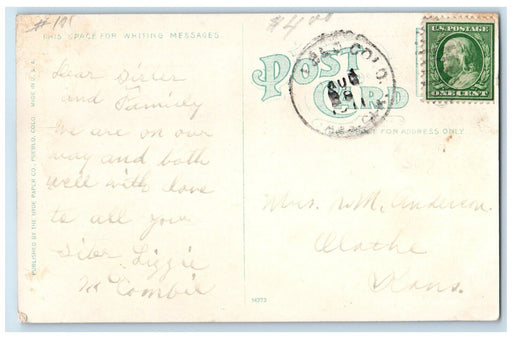 #101
$4.00
THIS SPACE FOR WRITING MESSAGES
POST CARD
SPACE FOR ADDRESS ONLY
U.S. POSTAGE
ONE CENT
COLO.
AUG
1911
Dear Sister
and Family
we are on our
way and both
well with love
to all your
Sister Lizzie
Mrs. N.M. Anderson
Olathe
Kans.
PUBLISHED BY THE NPCK PAPER CO., PUEBLO, COLO. MADE IN U.S.A.